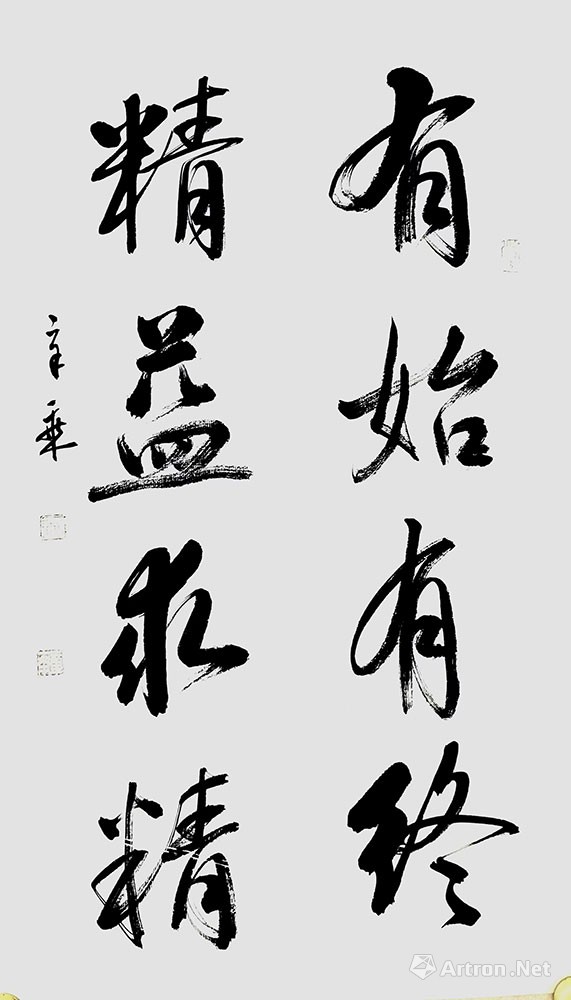 有始有终
精益求精
Artron.Net